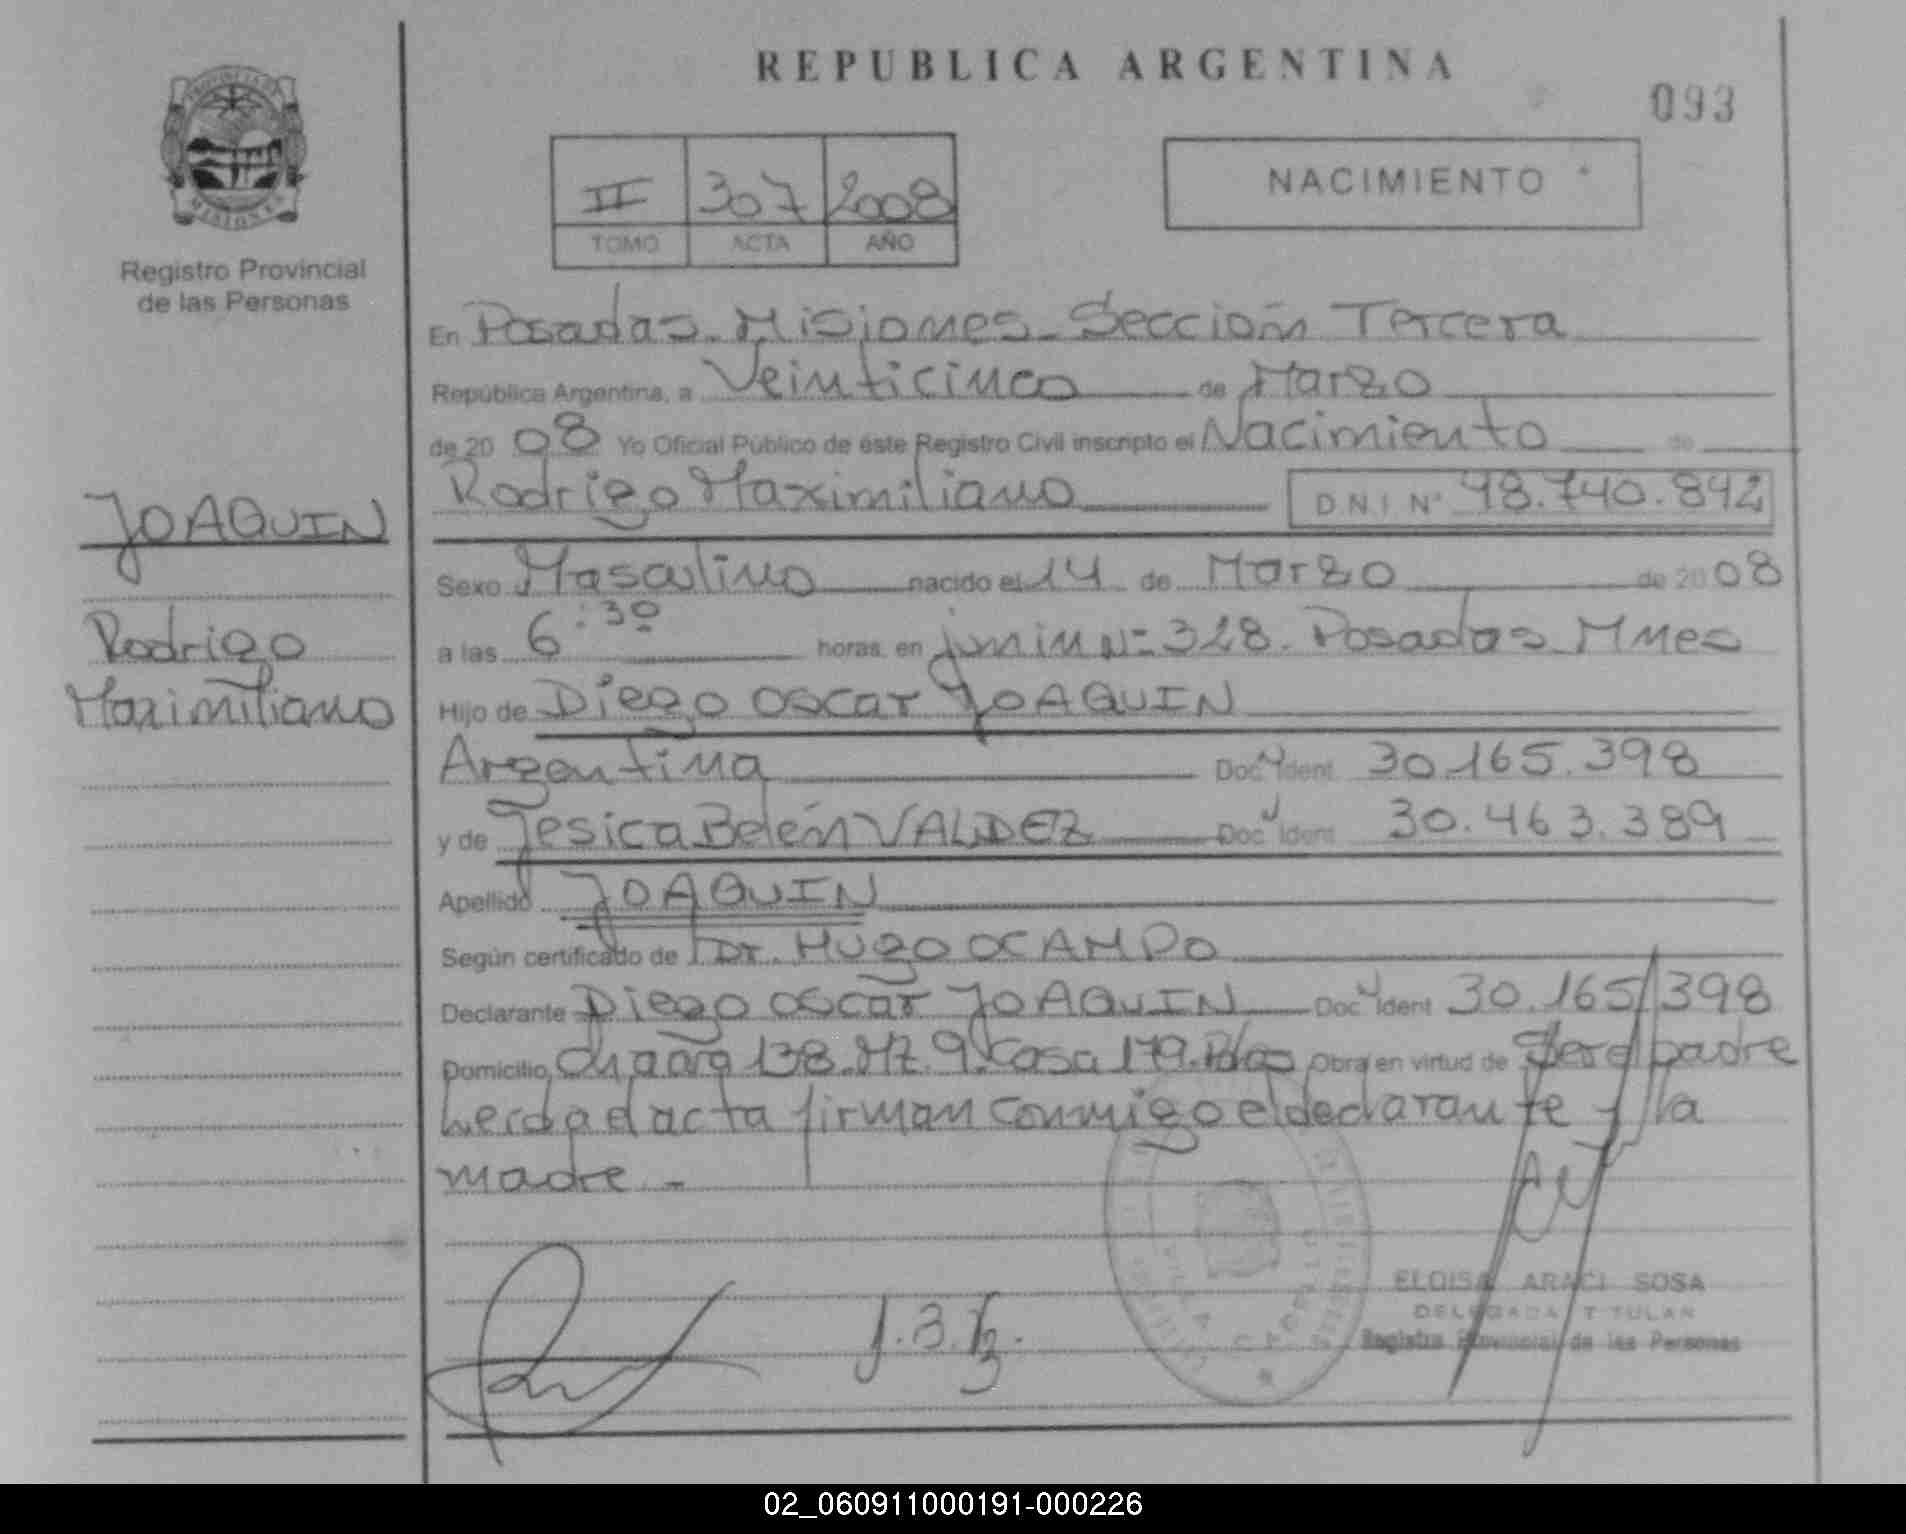 REPUBLICA ARGENTINA
093
PROVINCIA DE
MISIONES
Registro Provincial
de las Personas
II 307 2008
TOMO ACTA AÑO
NACIMIENTO
En Posadas. Misiones. Sección Tercera
República Argentina, a Veinticinco de Marzo
de 20 08 Yo Oficial Público de éste Registro Civil inscripto el Nacimiento de
Rodrigo Maximiliano D.N.I. N° 48.740.842
JOAQUIN
Rodrigo
Maximiliano
Sexo Masculino nacido el 14 de Marzo de 20 08
a las 6:30 horas, en junin N= 328. Posadas Mnes
Hijo de Diego Oscar JOAQUIN
Argentina Doc. Ident. 30.165.398
y de Jesica Belén VALDEZ Doc. Ident. 30.463.389
Apellido JOAQUIN
Según certificado de Dr. HUGO OCAMPO
Declarante Diego Oscar JOAQUIN Doc. Ident. 30.165.398
Domicilio Chacra 138. MZ. 9. Casa 179. Pdas Obra en virtud de Ser el padre
acta firman conmigo el declarante y la
madre.-
J.B.V.
ELOISA ARACI SOSA
DELEGADA TITULAR
Registro Provincial de las Personas
02_060911000191-000226